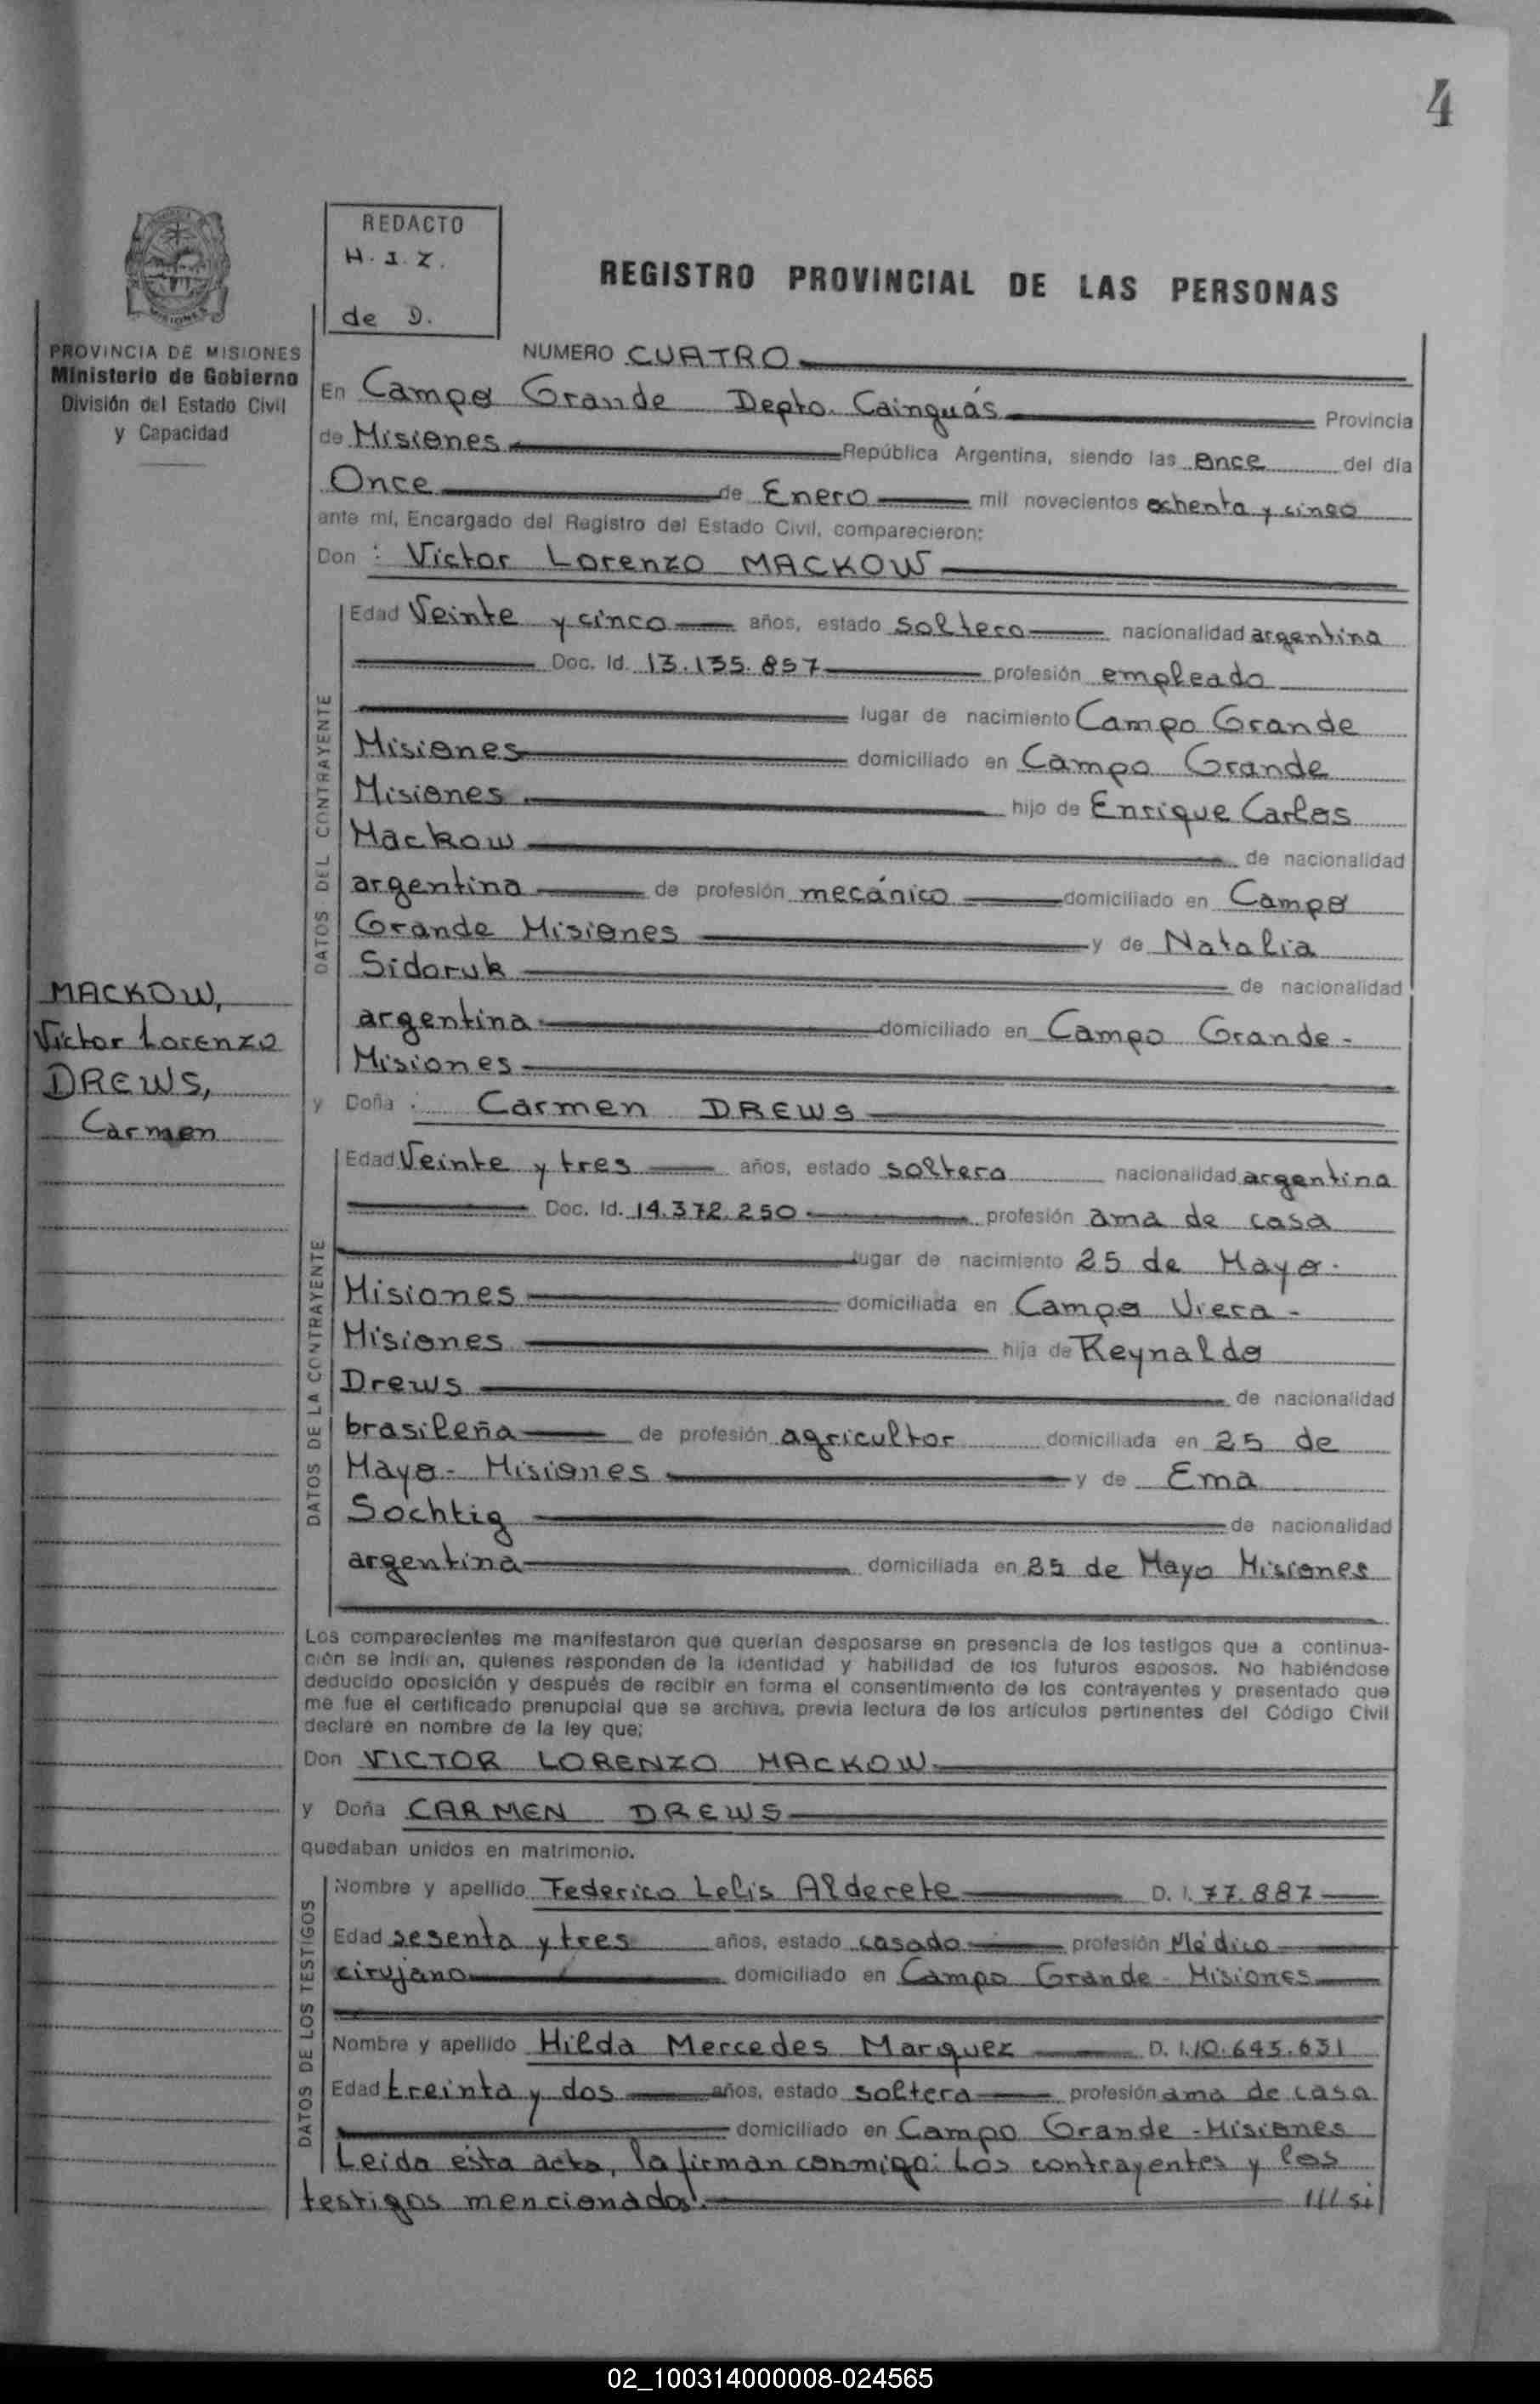 4
REDACTO
H. J. Z.
de D.
REGISTRO PROVINCIAL DE LAS PERSONAS
PROVINCIA DE MISIONES
Ministerio de Gobierno
División del Estado Civil
y Capacidad
NUMERO CUATRO
En Campo Grande Depto. Cainguás Provincia
de Misiones República Argentina, siendo las once del día
Once de Enero mil novecientos ochenta y cinco
ante mí, Encargado del Registro del Estado Civil, comparecieron:
Don : Victor Lorenzo MACKOW
DATOS DEL CONTRAYENTE
Edad Veinte y cinco años, estado soltero nacionalidad argentina
Doc. Id. 13.135.857 profesión empleado
lugar de nacimiento Campo Grande
Misiones domiciliado en Campo Grande
Misiones hijo de Enrique Carlos
Mackow de nacionalidad
argentina de profesión mecánico domiciliado en Campo
Grande Misiones y de Natalia
Sidoruk de nacionalidad
argentina domiciliado en Campo Grande -
Misiones
MACKOW,
Victor Lorenzo
DREWS,
Carmen
y Doña : Carmen DREWS
DATOS DE LA CONTRAYENTE
Edad Veinte y tres años, estado soltera nacionalidad argentina
Doc. Id. 14.372.250 profesión ama de casa
lugar de nacimiento 25 de Mayo -
Misiones domiciliada en Campo Viera -
Misiones hija de Reynaldo
Drews de nacionalidad
brasileña de profesión agricultor domiciliada en 25 de
Mayo - Misiones y de Ema
Sochtig de nacionalidad
argentina domiciliada en 25 de Mayo Misiones
Los comparecientes me manifestaron que querían desposarse en presencia de los testigos que a continua-
ción se indican, quienes responden de la identidad y habilidad de los futuros esposos. No habiéndose
deducido oposición y después de recibir en forma el consentimiento de los contrayentes y presentado que
me fue el certificado prenupcial que se archiva, previa lectura de los artículos pertinentes del Código Civil
declaré en nombre de la ley que;
Don VICTOR LORENZO MACKOW
y Doña CARMEN DREWS
quedaban unidos en matrimonio.
DATOS DE LOS TESTIGOS
Nombre y apellido Federico Lelis Alderete D. I. 77.887
Edad sesenta y tres años, estado casado profesión Médico
cirujano domiciliado en Campo Grande - Misiones
Nombre y apellido Hilda Mercedes Marquez D. I. 10.645.631
Edad treinta y dos años, estado soltera profesión ama de casa
domiciliado en Campo Grande - Misiones
Leida esta acta, la firman conmigo: Los contrayentes y los
testigos mencionados. /// si
02_100314000008-024565